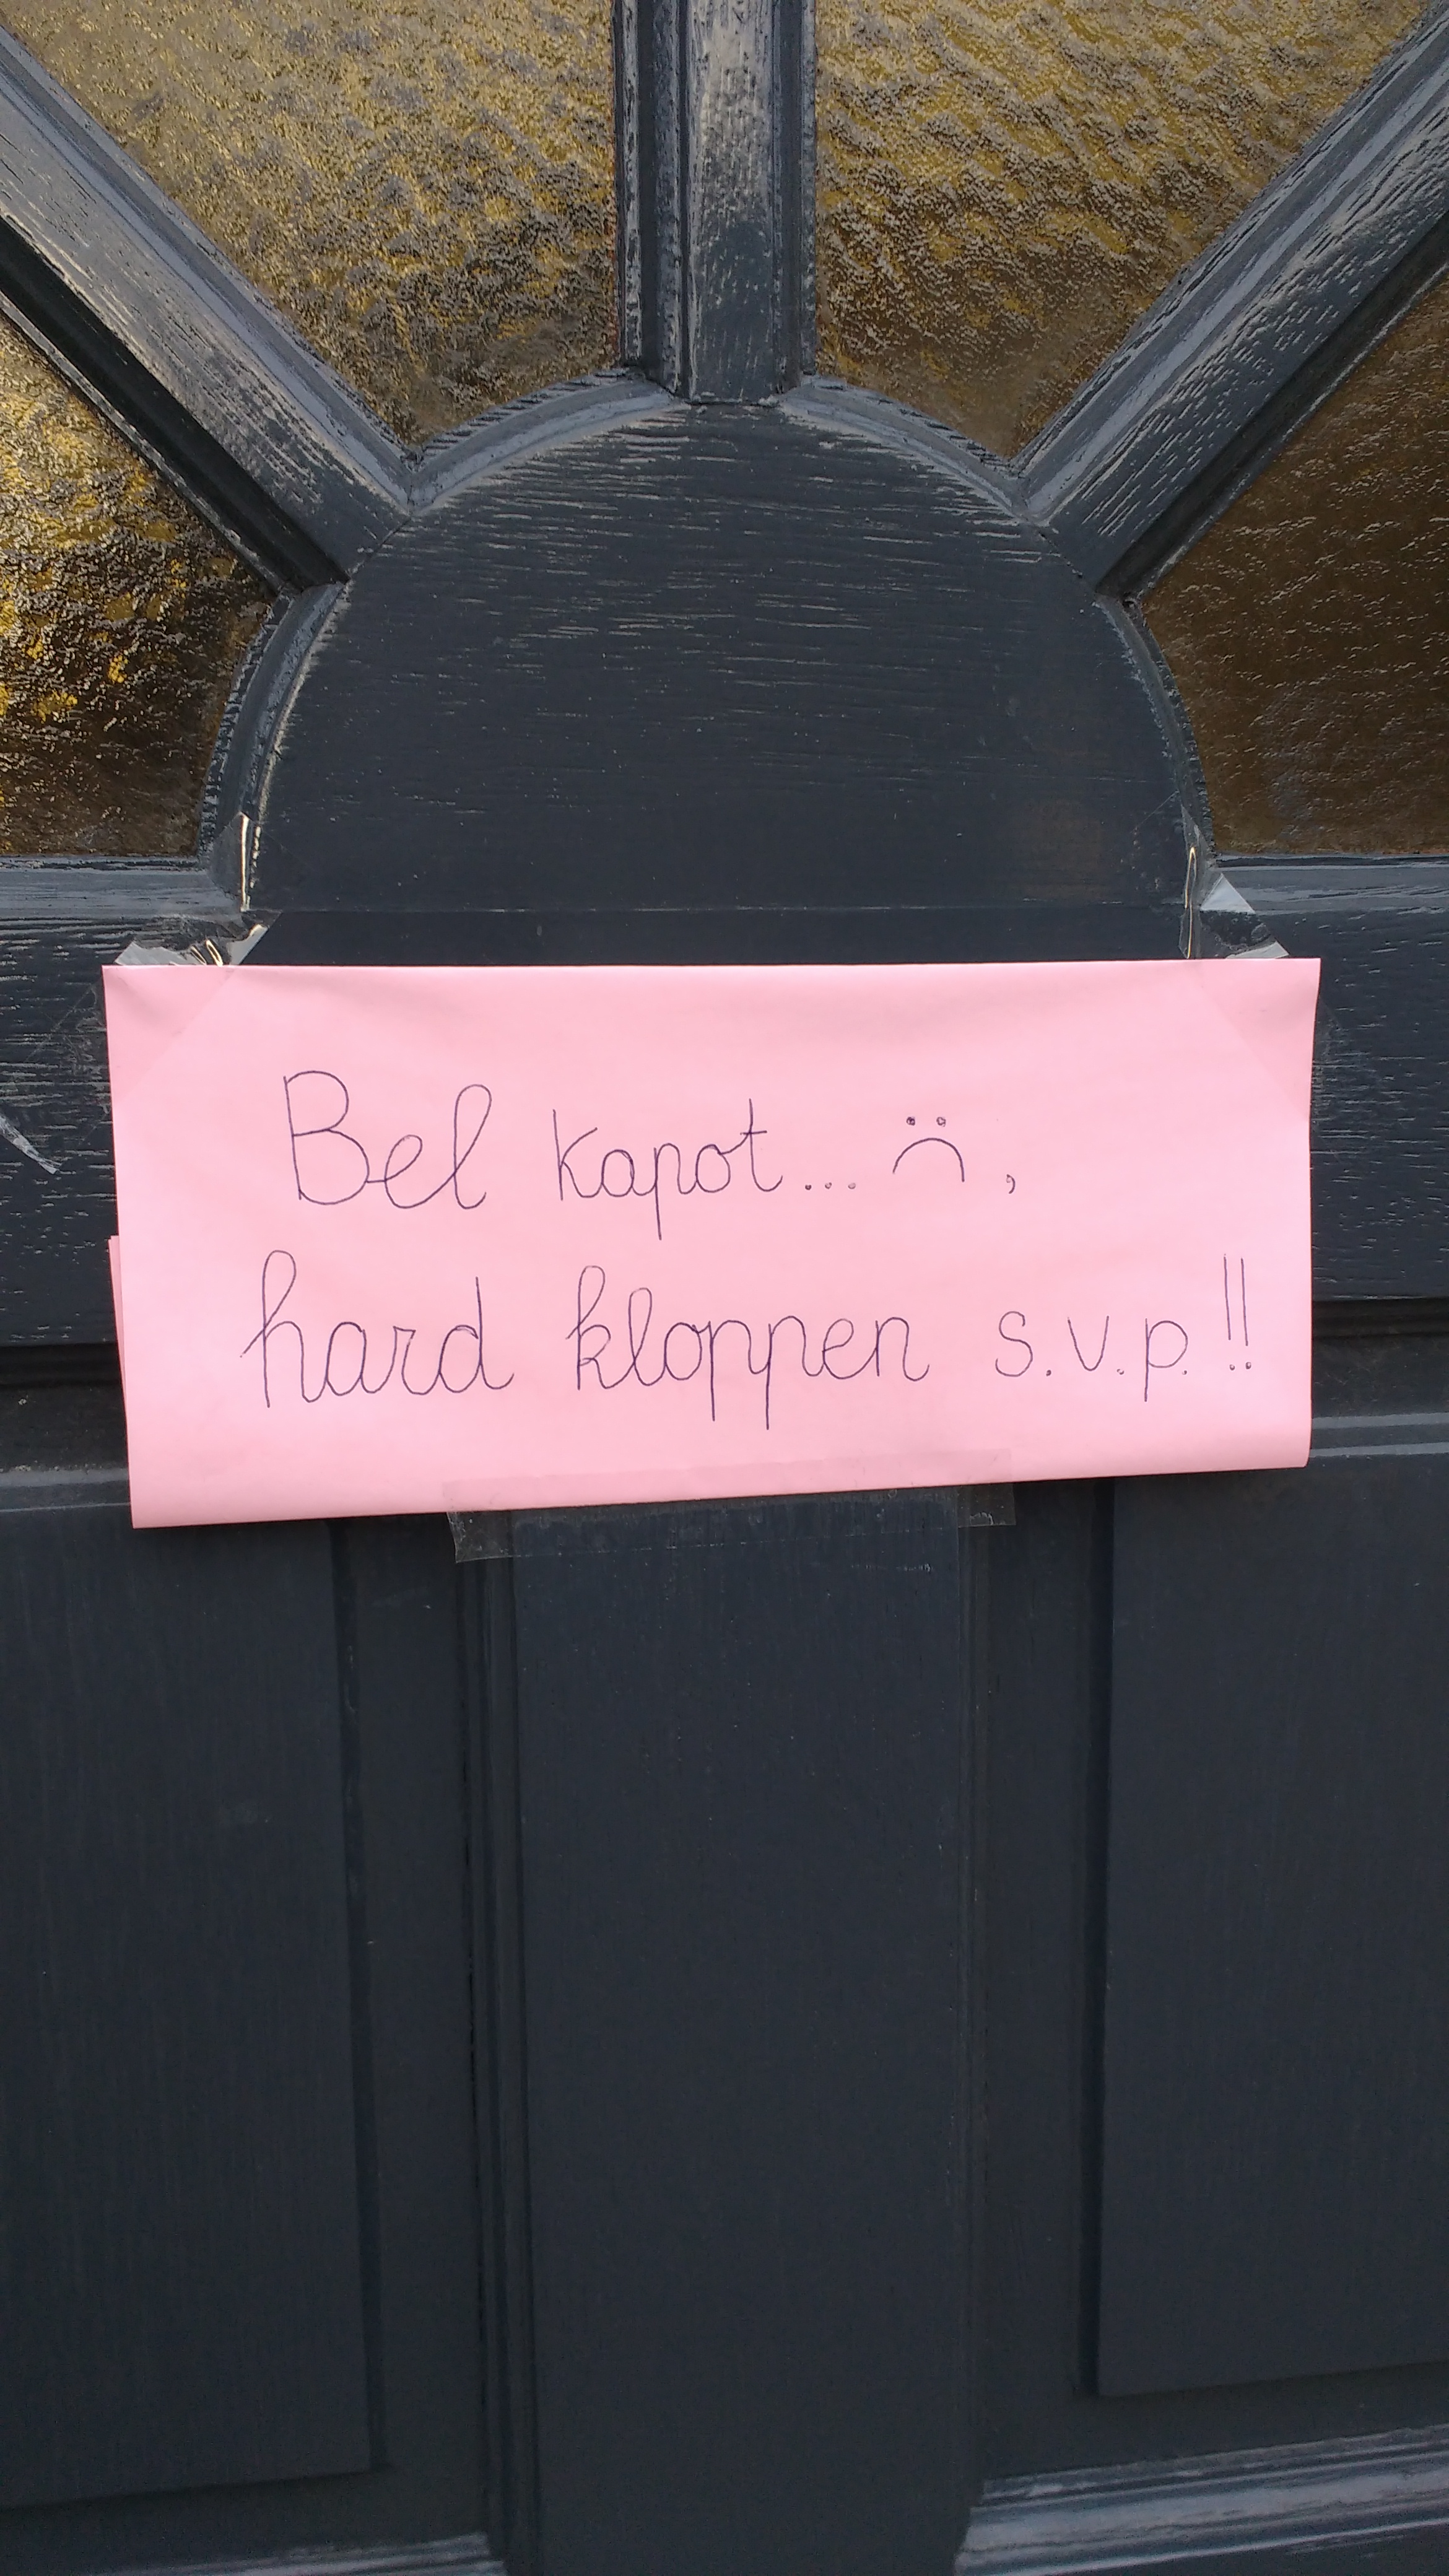 Bel kapot... ,
hard kloppen s.v.p.!!